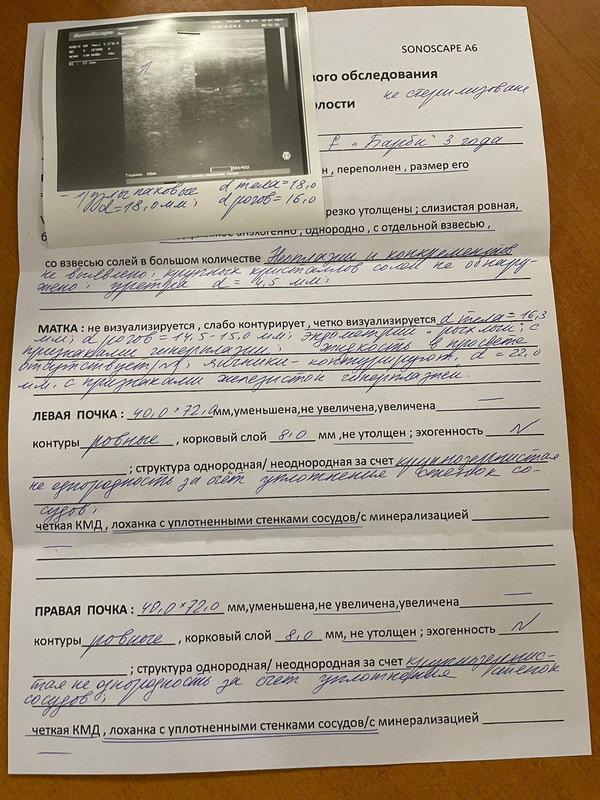 SonoScape
SONOSCAPE A6
вого обследования
не стерилизована
лости
♀ "Барби" 3 года
н , переполнен , размер его
1) узлы паховые d тела = 18,0
d = 18,0 мм; d рогов = 16,0
резко утолщены ; слизистая ровная,
анэхогенно , однородно , с отдельной взвесью ,
со взвесью солей в большом количестве Неоплазии и конкрементов
не выявлено; крупных кристаллов солей не обнару-
жено; уретра d = 4,5 мм;
МАТКА : не визуализируется , слабо контурирует , четко визуализируется d тела = 16,3
мм; d рогов = 14,5-15,0 мм; эндометрий "рыхлый"; с
признаками гиперплазии; жидкость в просвете
отсутствует; яичники - контурируют, d = 22,0
мм, с признаками железистой гиперплазии.
ЛЕВАЯ ПОЧКА : 40,0 × 72,0 мм,уменьшена,не увеличена,увеличена —
контуры ровные , корковый слой 8,0 мм ,не утолщен ; эхогенность N
; структура однородная/ неоднородная за счет крупнозернистая
неоднородность за счёт уплотнения стенок со-
судов;
четкая КМД , лоханка с уплотненными стенками сосудов/с минерализацией
—
ПРАВАЯ ПОЧКА : 40,0 × 72,0 мм,уменьшена,не увеличена,увеличена —
контуры ровные , корковый слой 8,0 мм, не утолщен ; эхогенность N
; структура однородная/ неоднородная за счет крупнозернис-
тая неоднородность за счёт уплотнения стенок
сосудов;
четкая КМД , лоханка с уплотненными стенками сосудов/с минерализацией
—